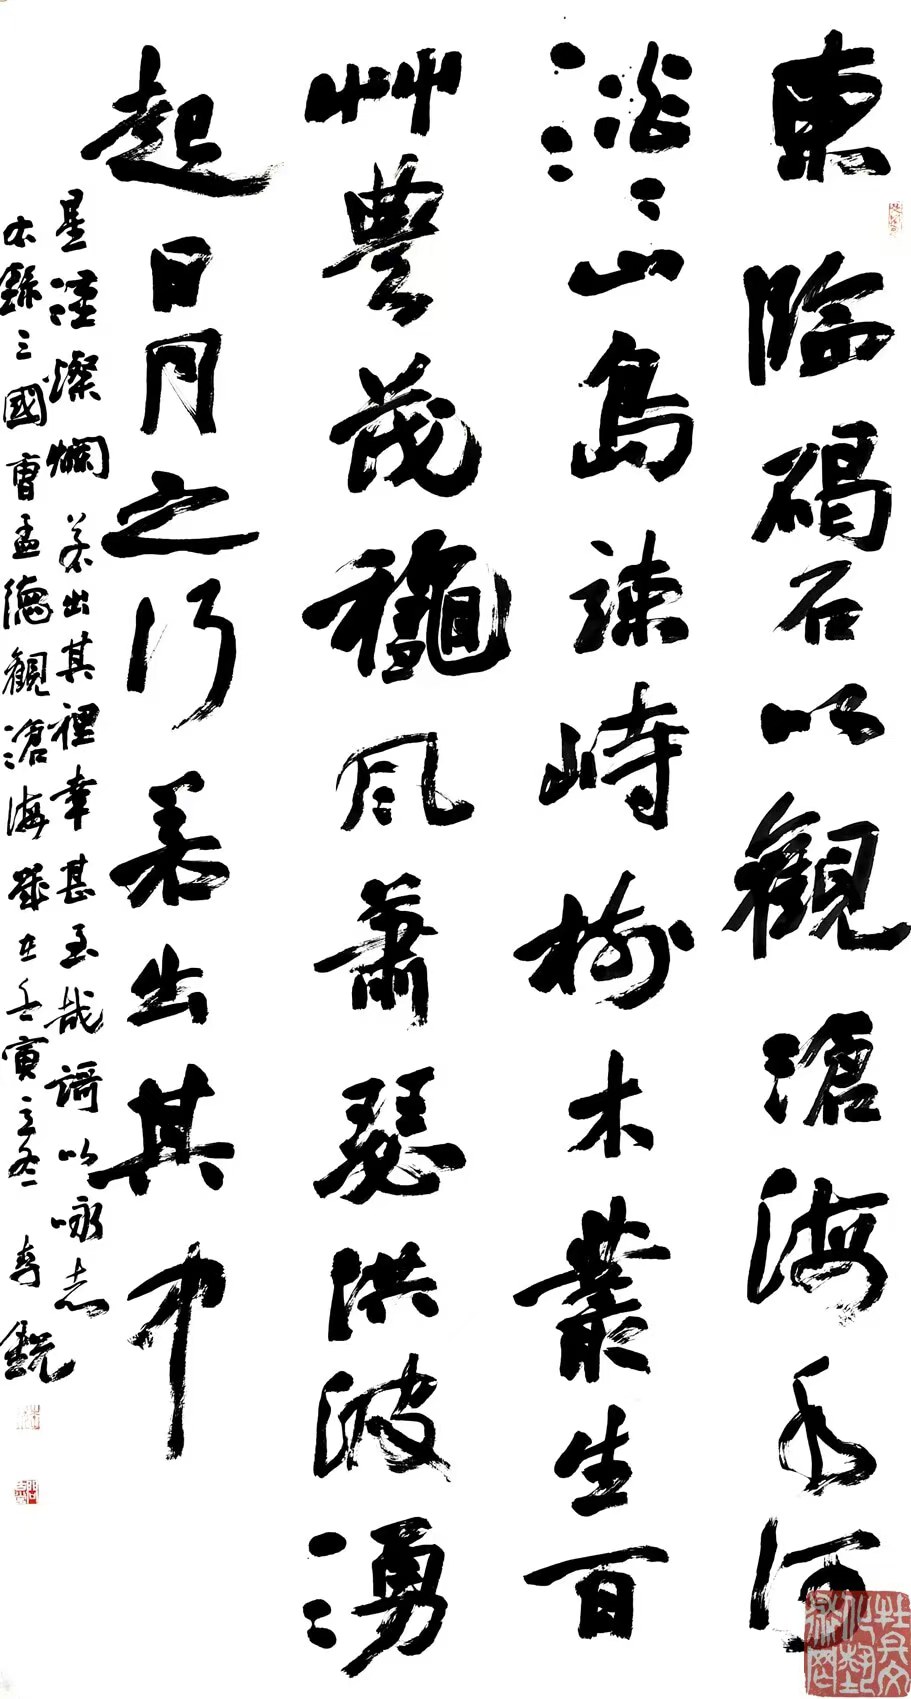 東臨碣石以觀滄海水何
淡〻山島竦峙樹木叢生百
艸豐茂穐風蕭瑟洪波湧
起日月之行若出其中
星漢燦爛若出其裡幸甚至哉謌以咏志
右錄三國曹孟德觀滄海歲在壬寅之冬 李銳